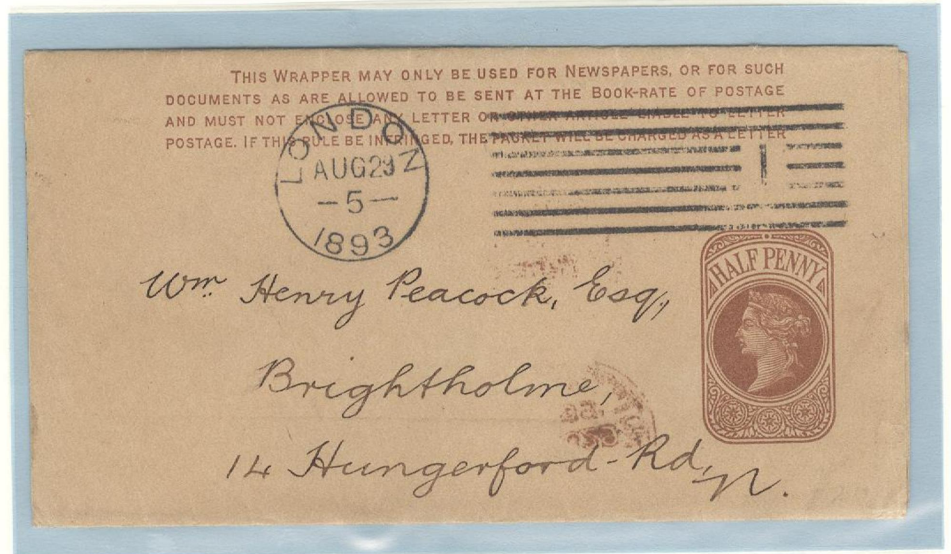 THIS WRAPPER MAY ONLY BE USED FOR NEWSPAPERS, OR FOR SUCH
DOCUMENTS AS ARE ALLOWED TO BE SENT AT THE BOOK-RATE OF POSTAGE
AND MUST NOT ENCLOSE ANY LETTER OR OTHER ARTICLE LIABLE TO LETTER
POSTAGE. IF THIS RULE BE INFRINGED, THE PACKET WILL BE CHARGED AS A LETTER
LONDON
AUG 29
-5-
1893
1
HALF PENNY
Wm. Henry Peacock, Esq.,
Brightholme,
14 Hungerford-Rd,
N.